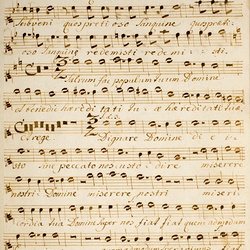 Subveni quos pretioso Sanguine quos preti-
oso Sanguine redemisti redemi - sti
Salvum fac populum tuum Domine
et benedic hæreditati tuæ hæreditati tuæ
et rege Dignare Domine die i-
sto sine peccato nos custodire miserere
nostri Domine miserere nostri miseri-
cordia tua Domine super nos fiat fiat quemadmodum